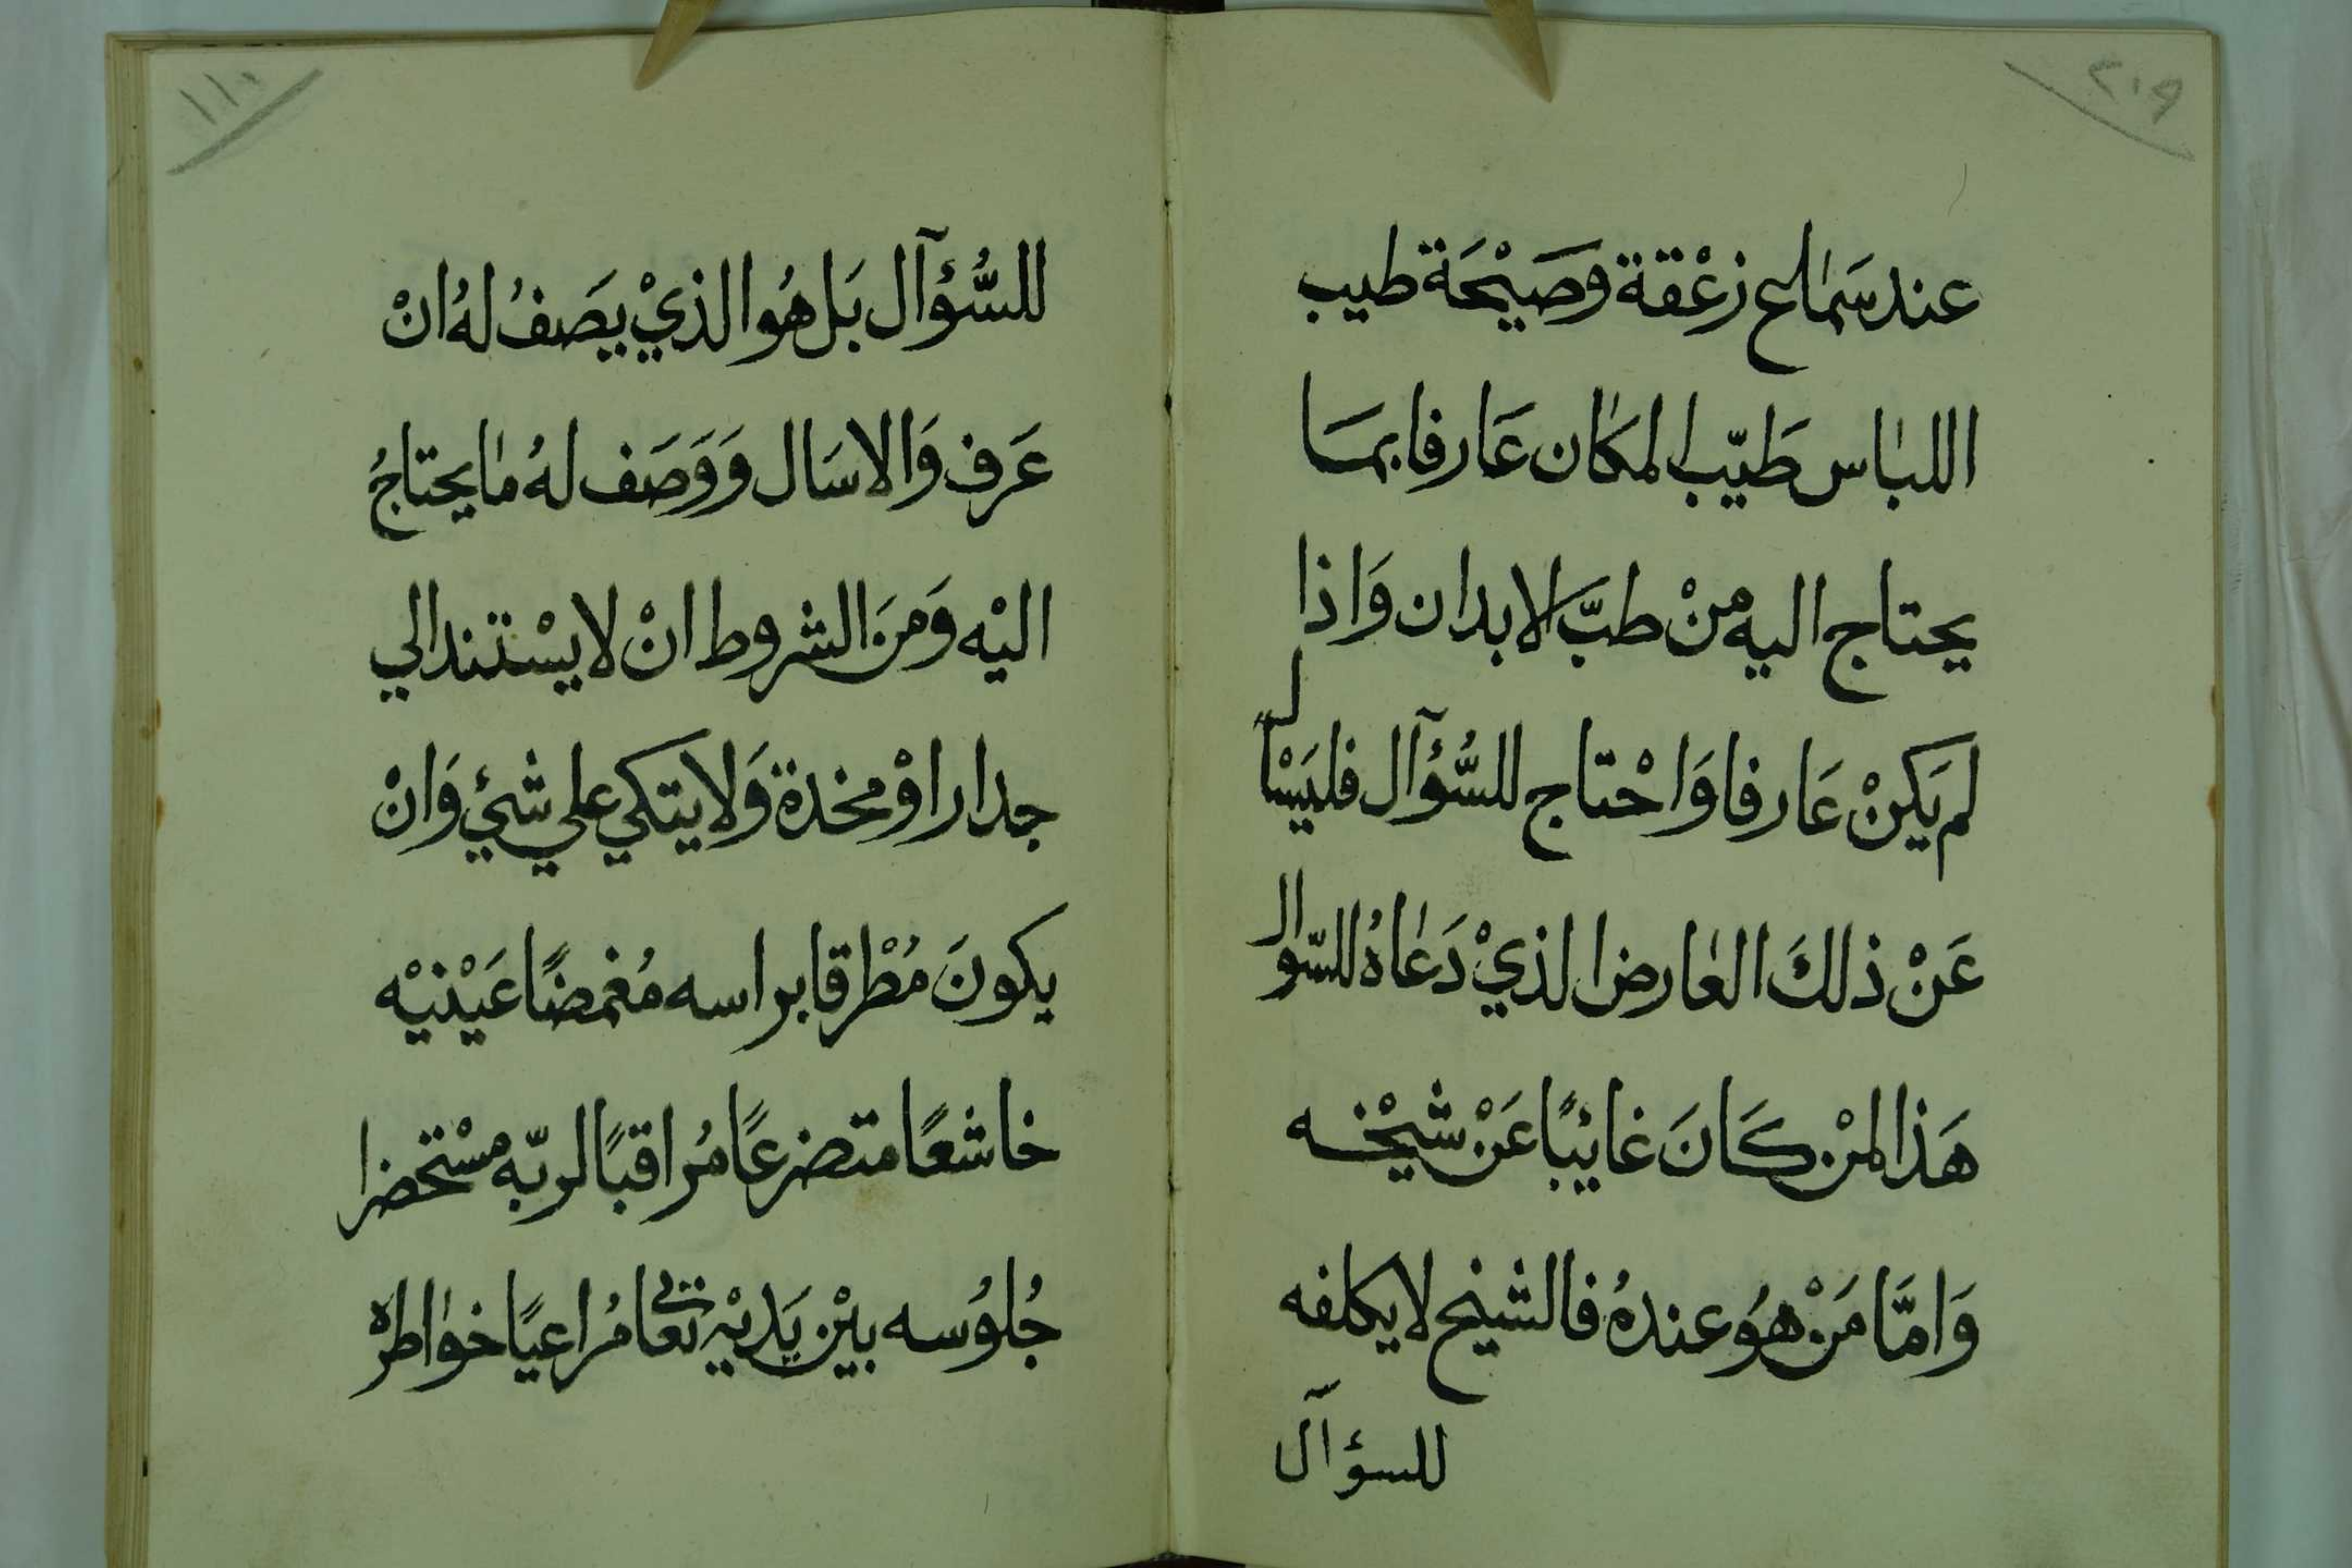 ٢٠٩
عند سَمٰاع زعْقة وصَيْحَة طيب
اللبٰاس طَيّب المكان عَارفا بمَا
يحتاج اليه منْ طبّ الابدان وَاذا
لم يَكنْ عَارفا وَاحْتاج للسُّؤآل فليَسْأل
عَنْ ذلكَ العٰارض الذيْ دَعٰاهُ للسّوال
هَذا لمنْ كَانَ غائبًا عَنْ شيْخه
وَامَّا مَنْ هوُ عندهُ فالشيخ لا يكلفه
للسؤآل
١١٠
للسُّؤآل بَل هُوا لذيْ يصَفُ لهُ انْ
عَرف وَالا سَال وَوَصَف لهُ مٰا يحتاجُ
اليْه وَمنَ الشروط انْ لا يسْتند الي
جدار اوْ مخدة وَلا يتكي علي شئ وَانْ
يكونَ مُطْرقا براسه مُغمضًا عَيْنيْه
خاشعًا متضرعًا مُراقبًا لربّه مسْتحضرا
جُلوُسه بيْن يَديْه تعالى مُراعيًا خوٰاطره